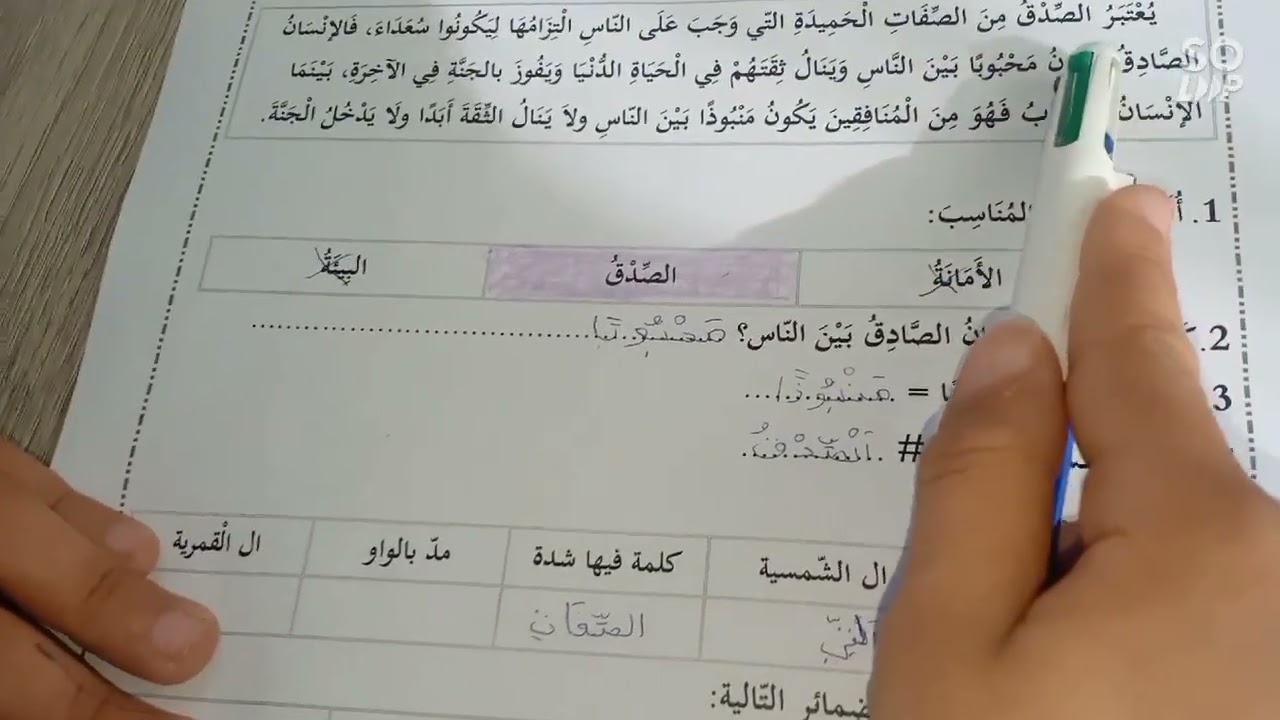 يُعْتَبَرُ الصِّدْقُ مِنَ الصِّفَاتِ الْحَمِيدَةِ التّي وَجَبَ عَلَى النّاسِ الْتِزَامُهَا لِيَكُونُوا سُعَدَاءَ، فَالإنْسَانُ
الصَّادِقُ مَحْبُوبًا بَيْنَ النَّاسِ وَيَنَالُ ثِقَتَهُمْ فِي الْحَيَاةِ الدُّنْيَا وَيَفُوزَ بالجَنَّةِ فِي الآخِرَةِ، بَيْنَمَا
الإنْسَانُ فَهُوَ مِنَ الْمُنَافِقِينَ يَكُونُ مَنْبُوذًا بَيْنَ النّاسِ ولاَ يَنَالُ الثِّقَةَ أَبَدًا ولَا يَدْخُلُ الْجَنَّةَ.
1. المُنَاسِبَ:
الأَمَانَةُ الصِّدْقُ البِيئَةُ
2. الصَّادِقُ بَيْنَ النّاس؟ مَحْبُوبًا
3 = مَنْبُوذًا
#
ال الشّمسية كلمة فيها شدة مدّ بالواو ال الْقمرية
الصِّفَاتِ
التّالية:
SO UP